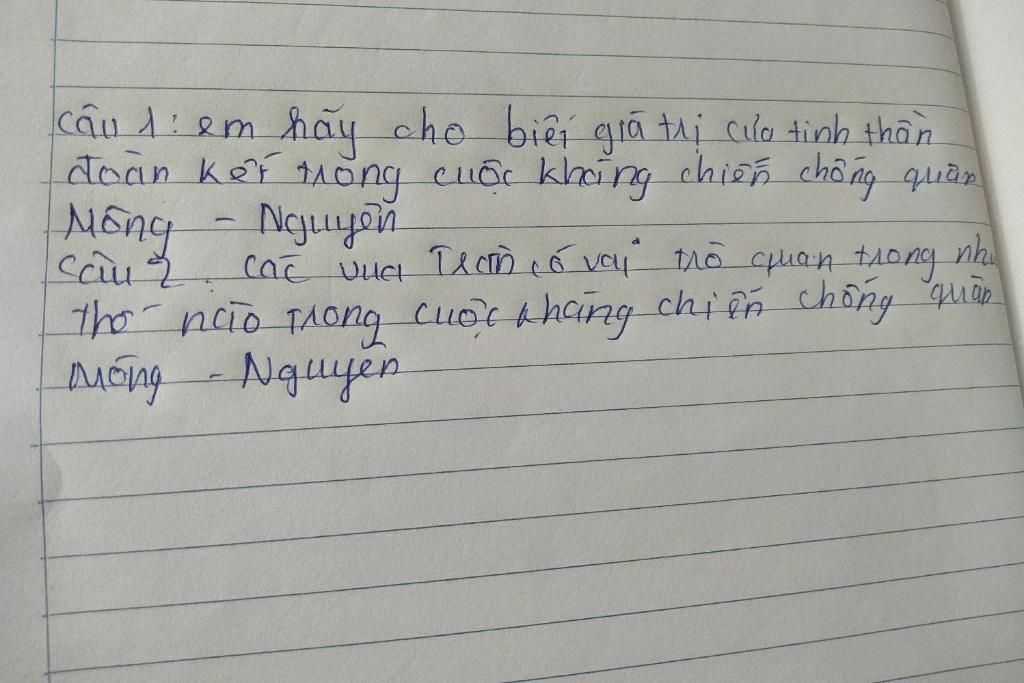 câu 1: em hãy cho biết giá trị của tinh thần
đoàn kết trong cuộc kháng chiến chống quân
Mông - Nguyên
câu 2. các vua Trần có vai trò quan trong như
thế nào trong cuộc kháng chiến chống quân
Mông - Nguyên